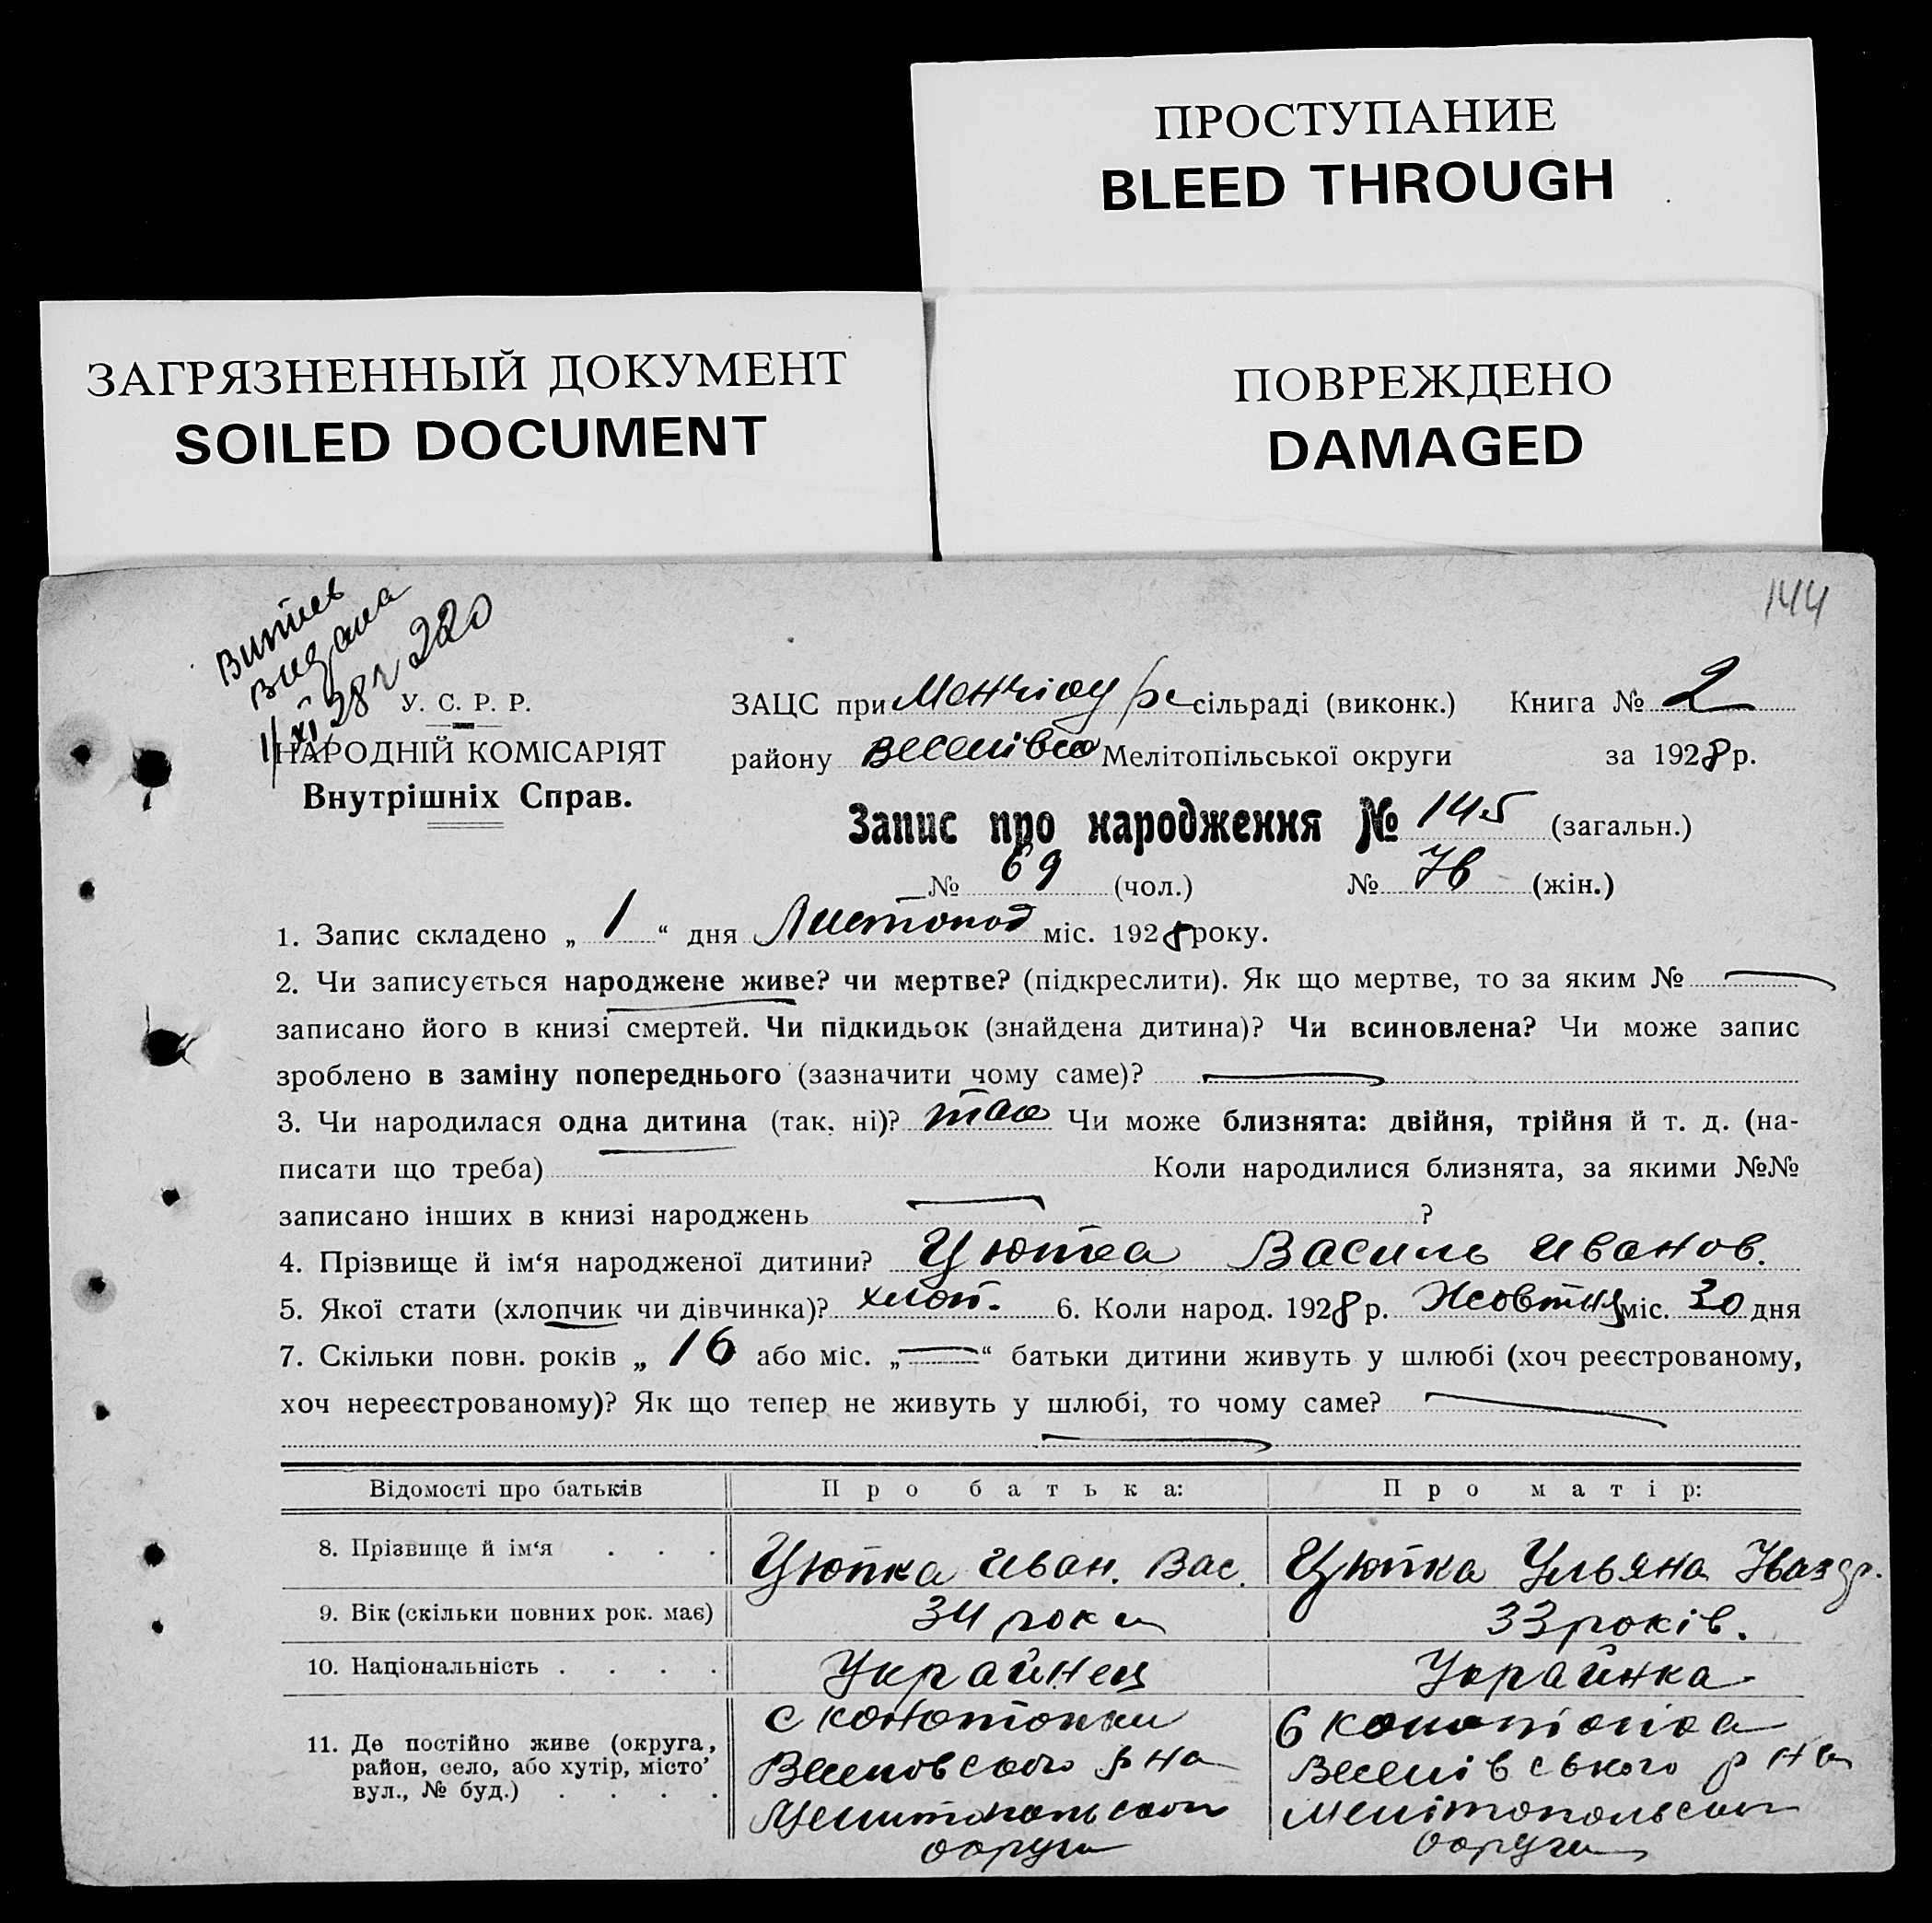 ПРОСТУПАНИЕ
BLEED THROUGH
ЗАГРЯЗНЕННЫЙ ДОКУМЕНТ
SOILED DOCUMENT
ПОВРЕЖДЕНО
DAMAGED
144
Витяг
видана
1/XI 28 р 220
У. С. Р. Р.
НАРОДНІЙ КОМІСАРІЯТ
Внутрішніх Справ.
ЗАЦС при сільраді (виконк.) Книга № 2
району Мелітопільської округи за 1928 р.
Запис про народження № 145 (загальн.)
№ 69 (чол.) № 76 (жін.)
1. Запис складено „ 1 “ дня Листопад міс. 1928 року.
2. Чи записується народжене живе? чи мертве? (підкреслити). Як що мертве, то за яким №
записано його в книзі смертей. Чи підкидьок (знайдена дитина)? Чи всиновлена? Чи може запис
зроблено в заміну попереднього (зазначити чому саме)?
3. Чи народилася одна дитина (так, ні)? так Чи може близнята: двійня, трійня й т. д. (на-
писати що треба) Коли народилися близнята, за якими №№
записано інших в книзі народжень ?
4. Прізвище й ім‘я народженої дитини? Цюпка Василь Иванов.
5. Якої стати (хлопчик чи дівчинка)? хлоп. 6. Коли народ. 1928 р. Жовтня міс. 30 дня
7. Скільки повн. років „ 16 або міс. „ “ батьки дитини живуть у шлюбі (хоч реєстрованому,
хоч нереєстрованому)? Як що тепер не живуть у шлюбі, то чому саме?
Відомості про батьків Про батька: Про матір:
8. Прізвище й ім‘я . . . Цюпка Иван. Вас. Цюпка Ульяна
9. Вік (скільки повних рок. має) 34 роки 33 років.
10. Національність . . . . Украйнец Украйнка
11. Де постійно живе (округа,
район, село, або хутір, місто
вул., № буд.) . . . .
с
Веселовского р на
округи
Веселівського р на
Мелітопольской
округи